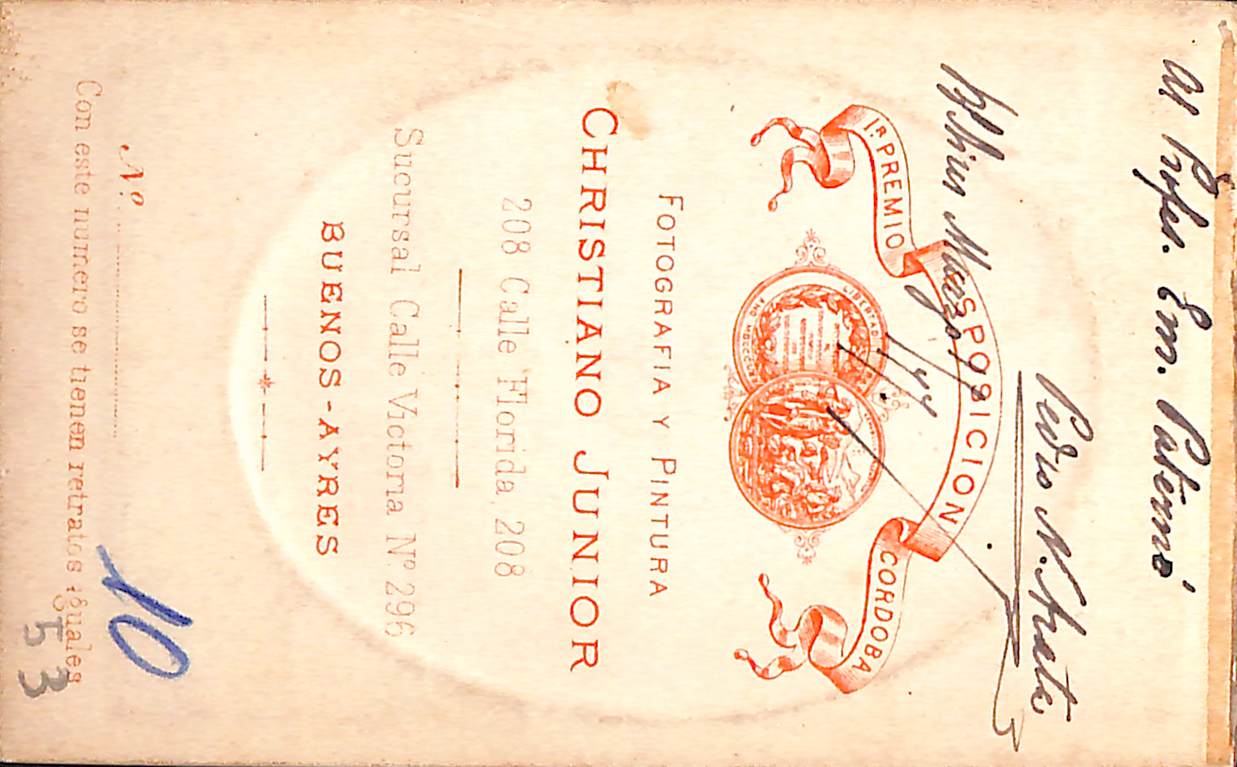 Al Profes. Em. Paternó
Pedro N. Arata
1R PREMIO
ESPOSICION
CORDOBA
LIBERTAD
FOTOGRAFIA Y PINTURA
CHRISTIANO JUNIOR
208 Calle Florida, 208
Sucursal Calle Victoria Nº 296
BUENOS-AYRES
Nº
10
Con este numero se tienen retratos iguales
53